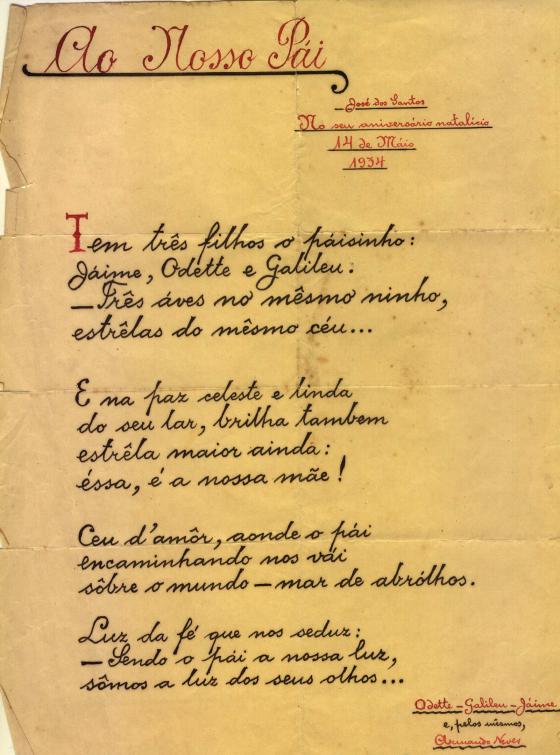 Ao Nosso Pái
José dos Santos
No seu aniversário natalício
14 de Máio
1934
Tem três filhos o páisinho:
Jáime, Odette e Galileu.
—Três áves no mêsmo ninho,
estrêlas do mêsmo céu...
E na paz celeste e linda
do seu lar, brilha tambem
estrêla maior ainda:
éssa, é a nossa mãe!
Ceu d'amôr, aonde o pái
encaminhando nos vái
sôbre o mundo — mar de abrólhos.
Luz da fé que nos seduz:
— Sendo o pái a nossa luz,
sômos a luz dos seus olhos...
Odette - Galileu - Jáime
e, pelos mêsmos,
Armando Neves